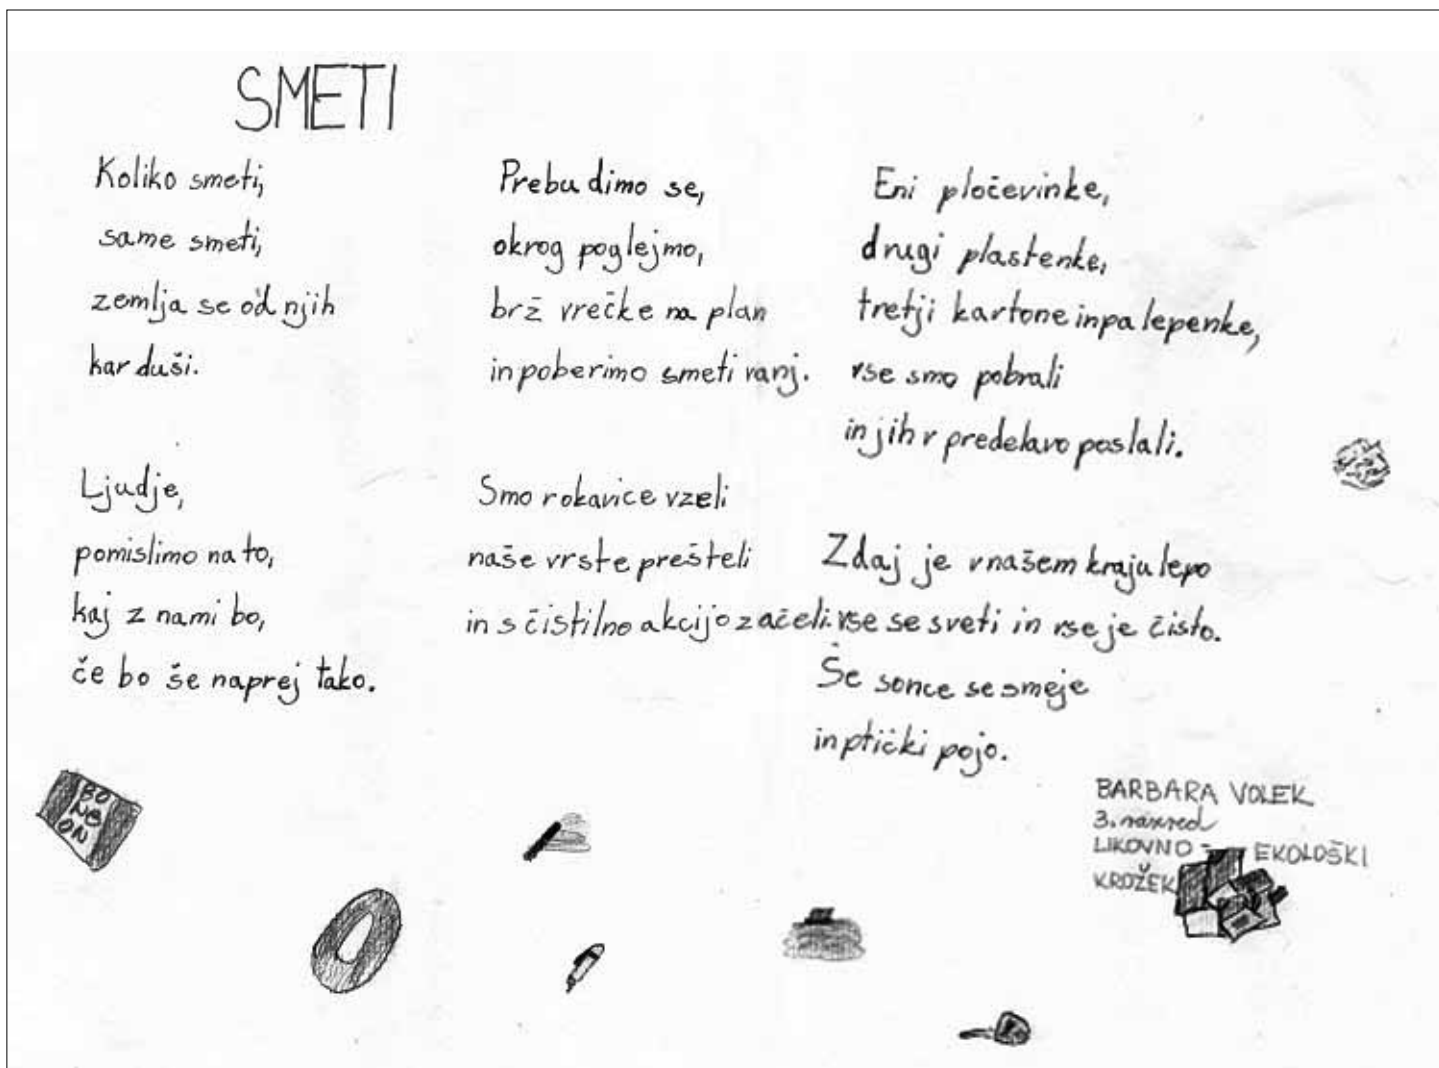 SMETI
Koliko smeti,
same smeti,
zemlja se od njih
kar duši.
Ljudje,
pomislimo na to,
kaj z nami bo,
če bo še naprej tako.
Prebudimo se,
okrog poglejmo,
brž vrečke na plan
in poberimo smeti vanj.
Smo rokavice vzeli
naše vrste prešteli
in s čistilno akcijo začeli.
Eni pločevinke,
drugi plastenke,
tretji kartone in pa lepenke,
vse smo pobrali
in jih v predelavo poslali.
Zdaj je v našem kraju lepo
vse se sveti in vse je čisto.
Še sonce se smeje
in ptički pojo.
BARBARA VOLEK
3. razred
LIKOVNO - EKOLOŠKI
KROŽEK
BO
NB
ON